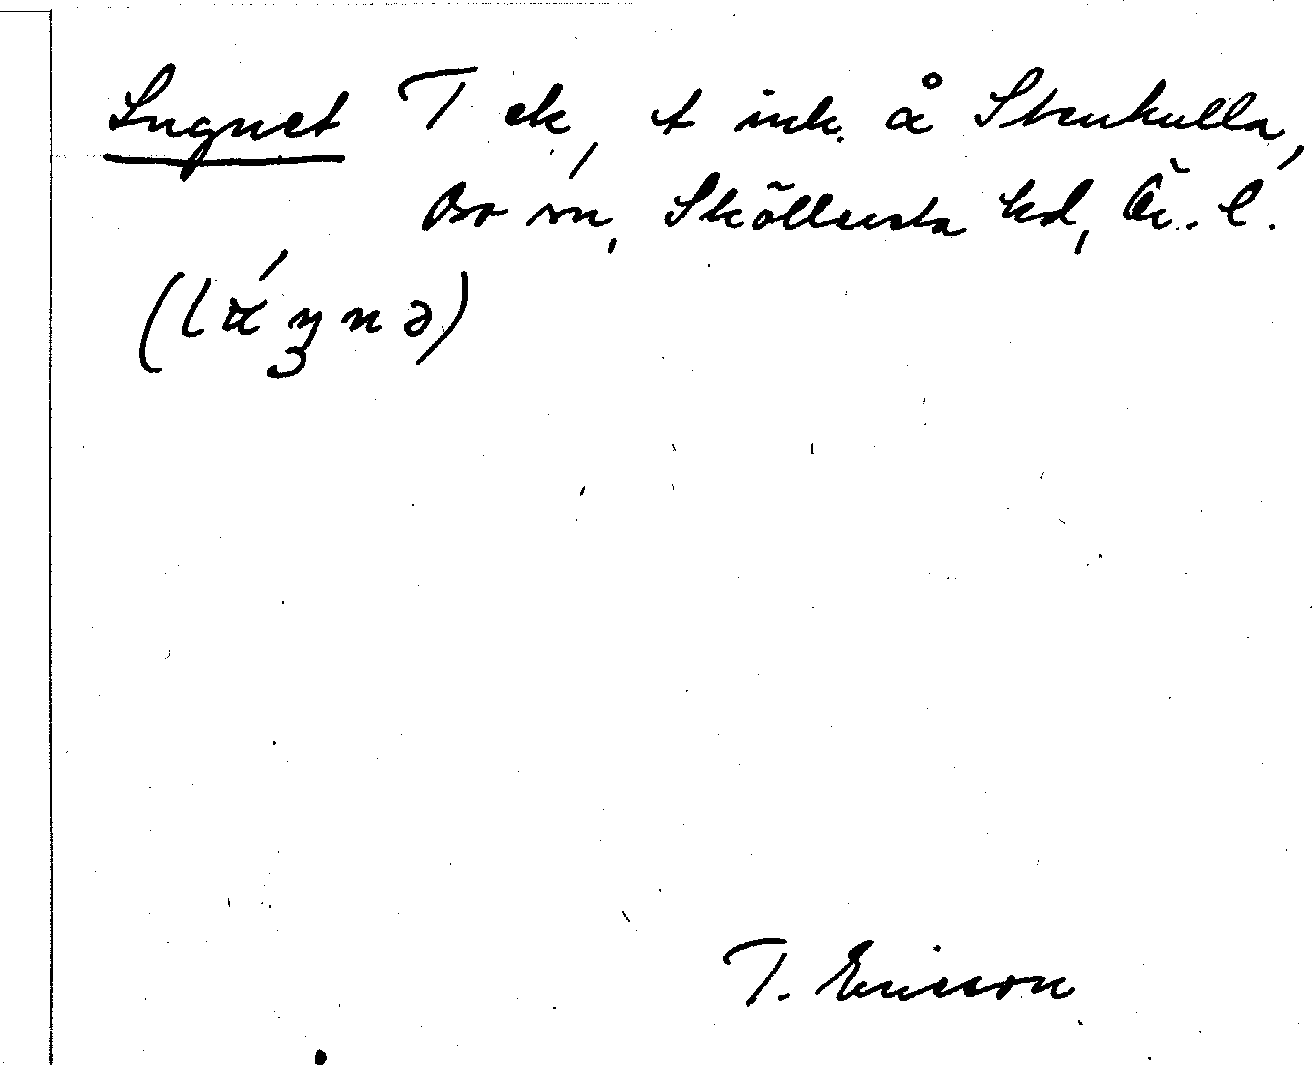 Lugnet T ek, t ink. å Stenkulla,
Bo sn, Sköllersta hd, Ö. l.
T. Ericson